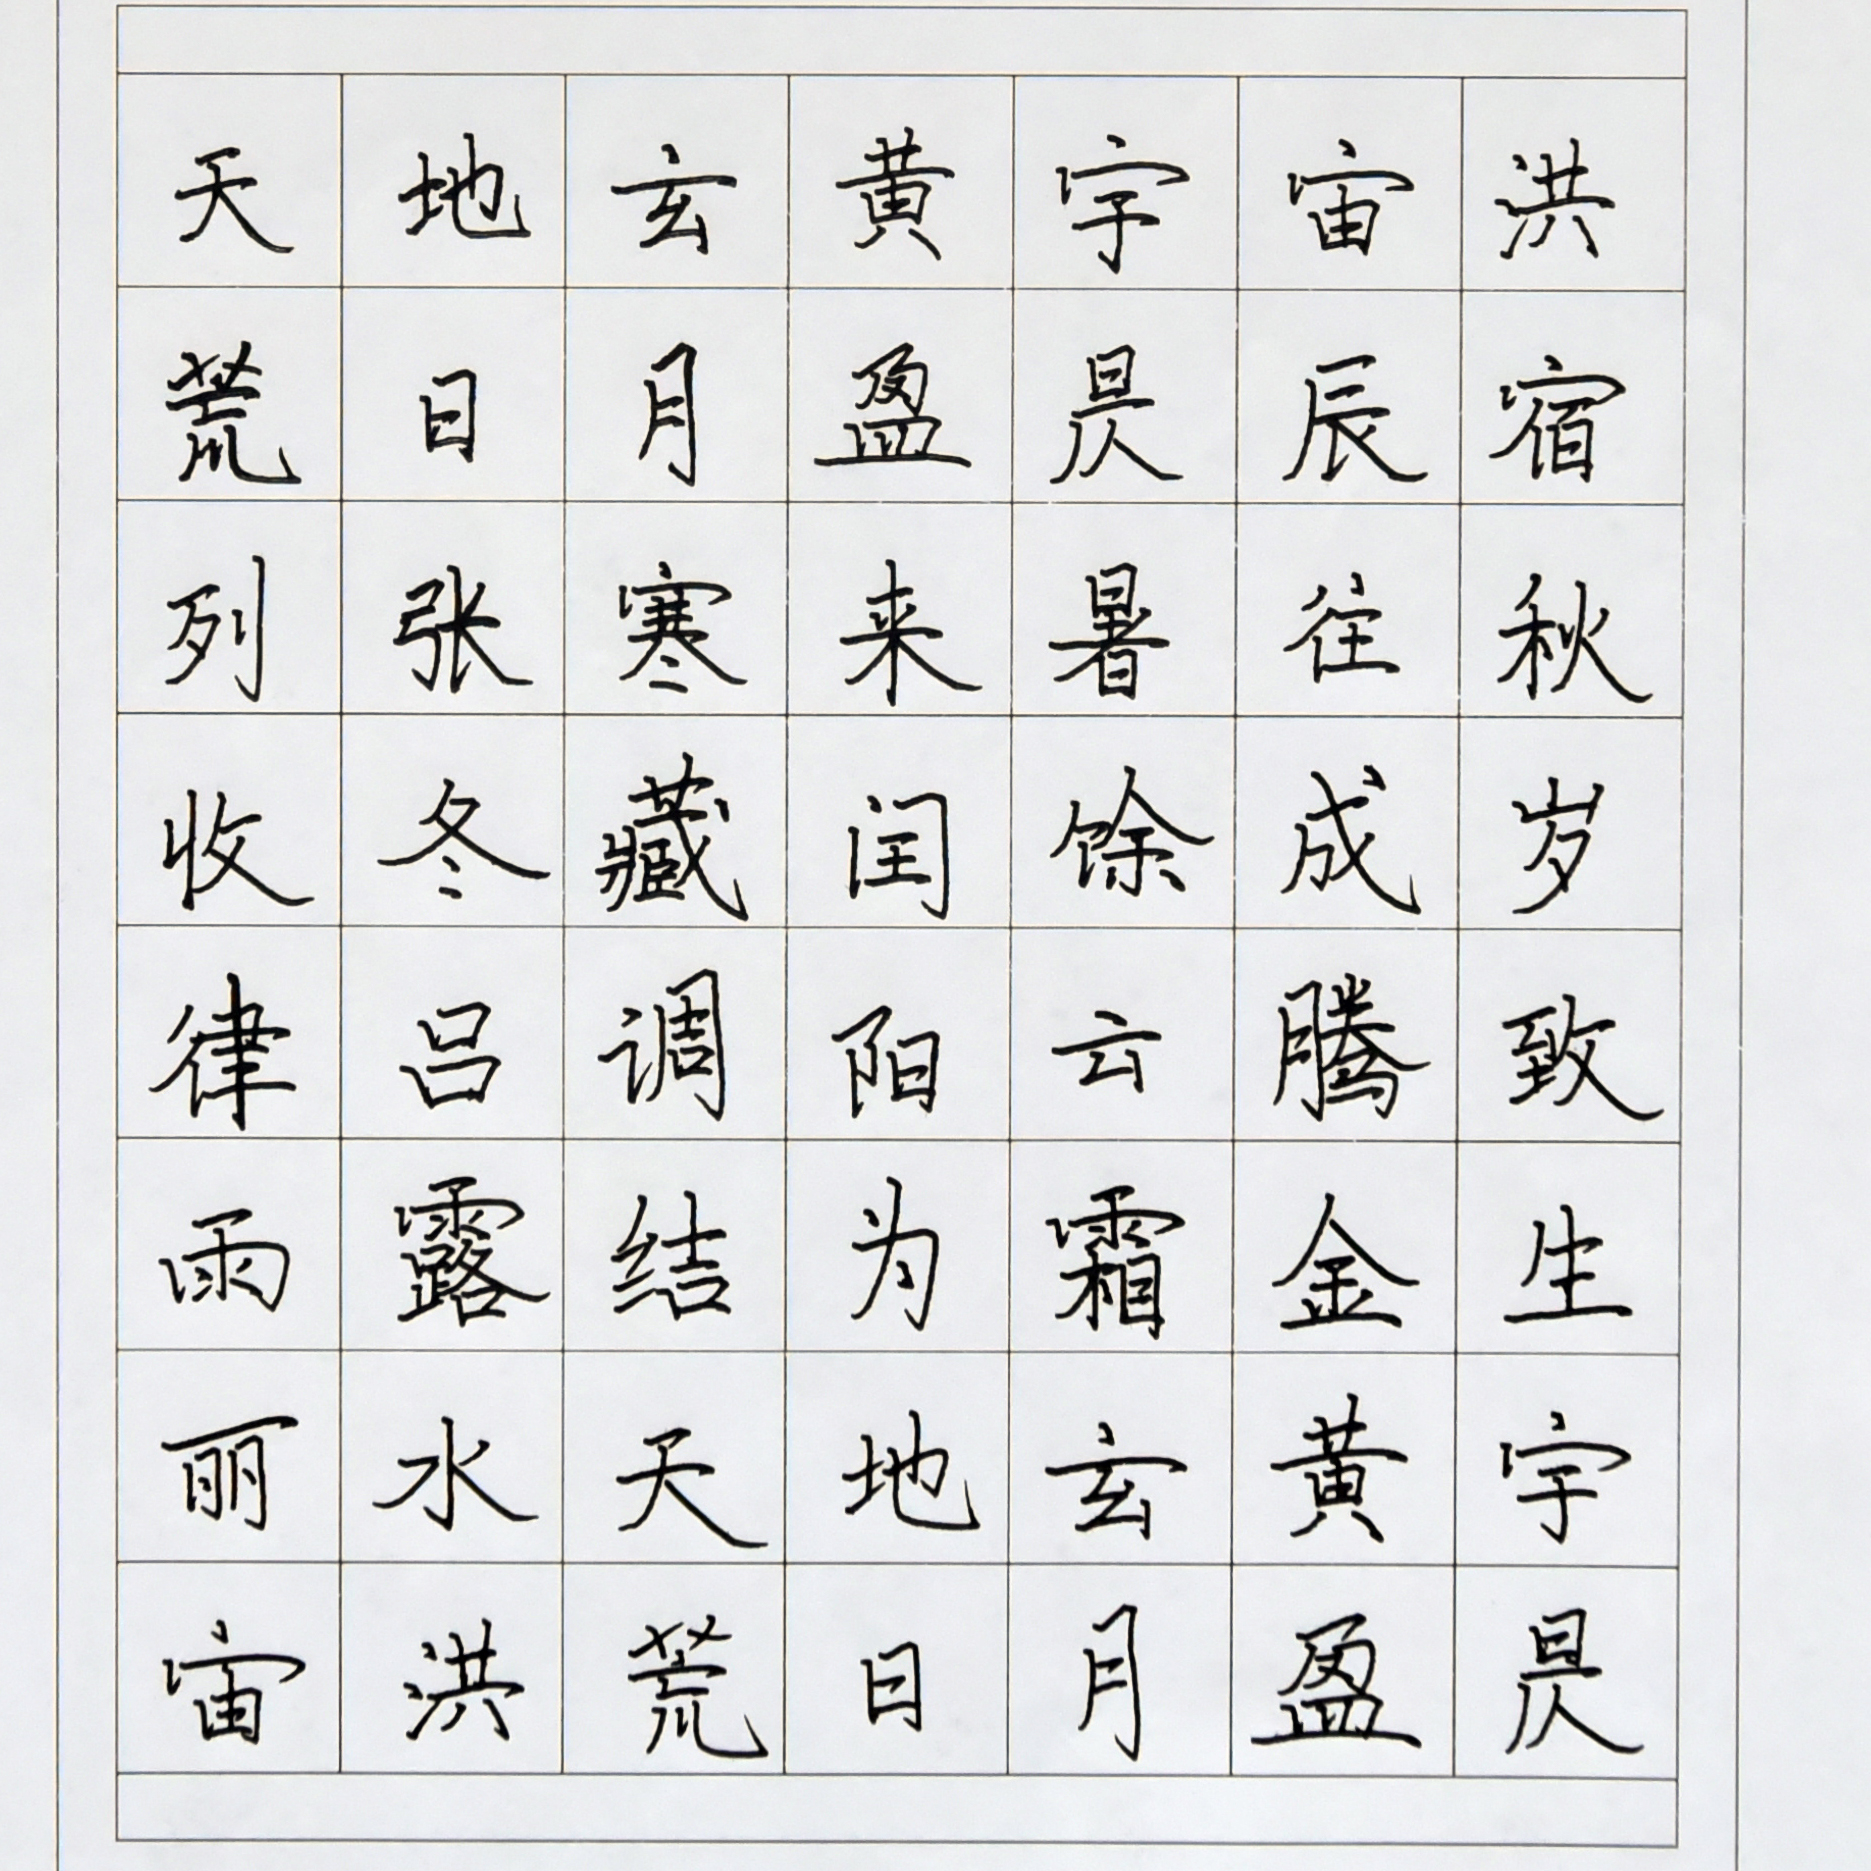 天地玄黄宇宙洪
荒日月盈昃辰宿
列张寒来暑往秋
收冬藏闰馀成岁
律吕调阳云腾致
雨露结为霜金生
丽水天地玄黄宇
宙洪荒日月盈昃